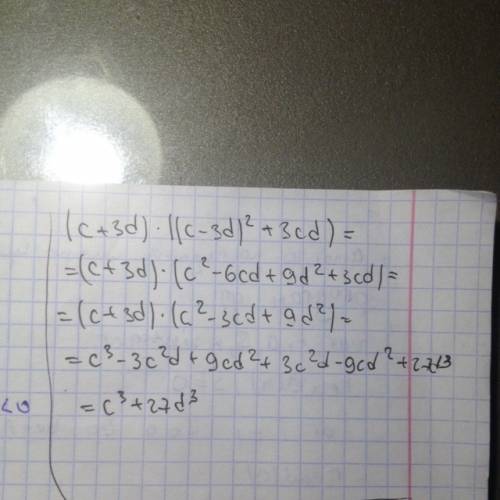 (c+3d)·((c-3d)²+3cd)=
=(c+3d)·(c²-6cd+9d²+3cd)=
=(c+3d)·(c²-3cd+9d²)=
=c³-3c²d+9cd²+3c²d-9cd²+27d³
<0
=c³+27d³